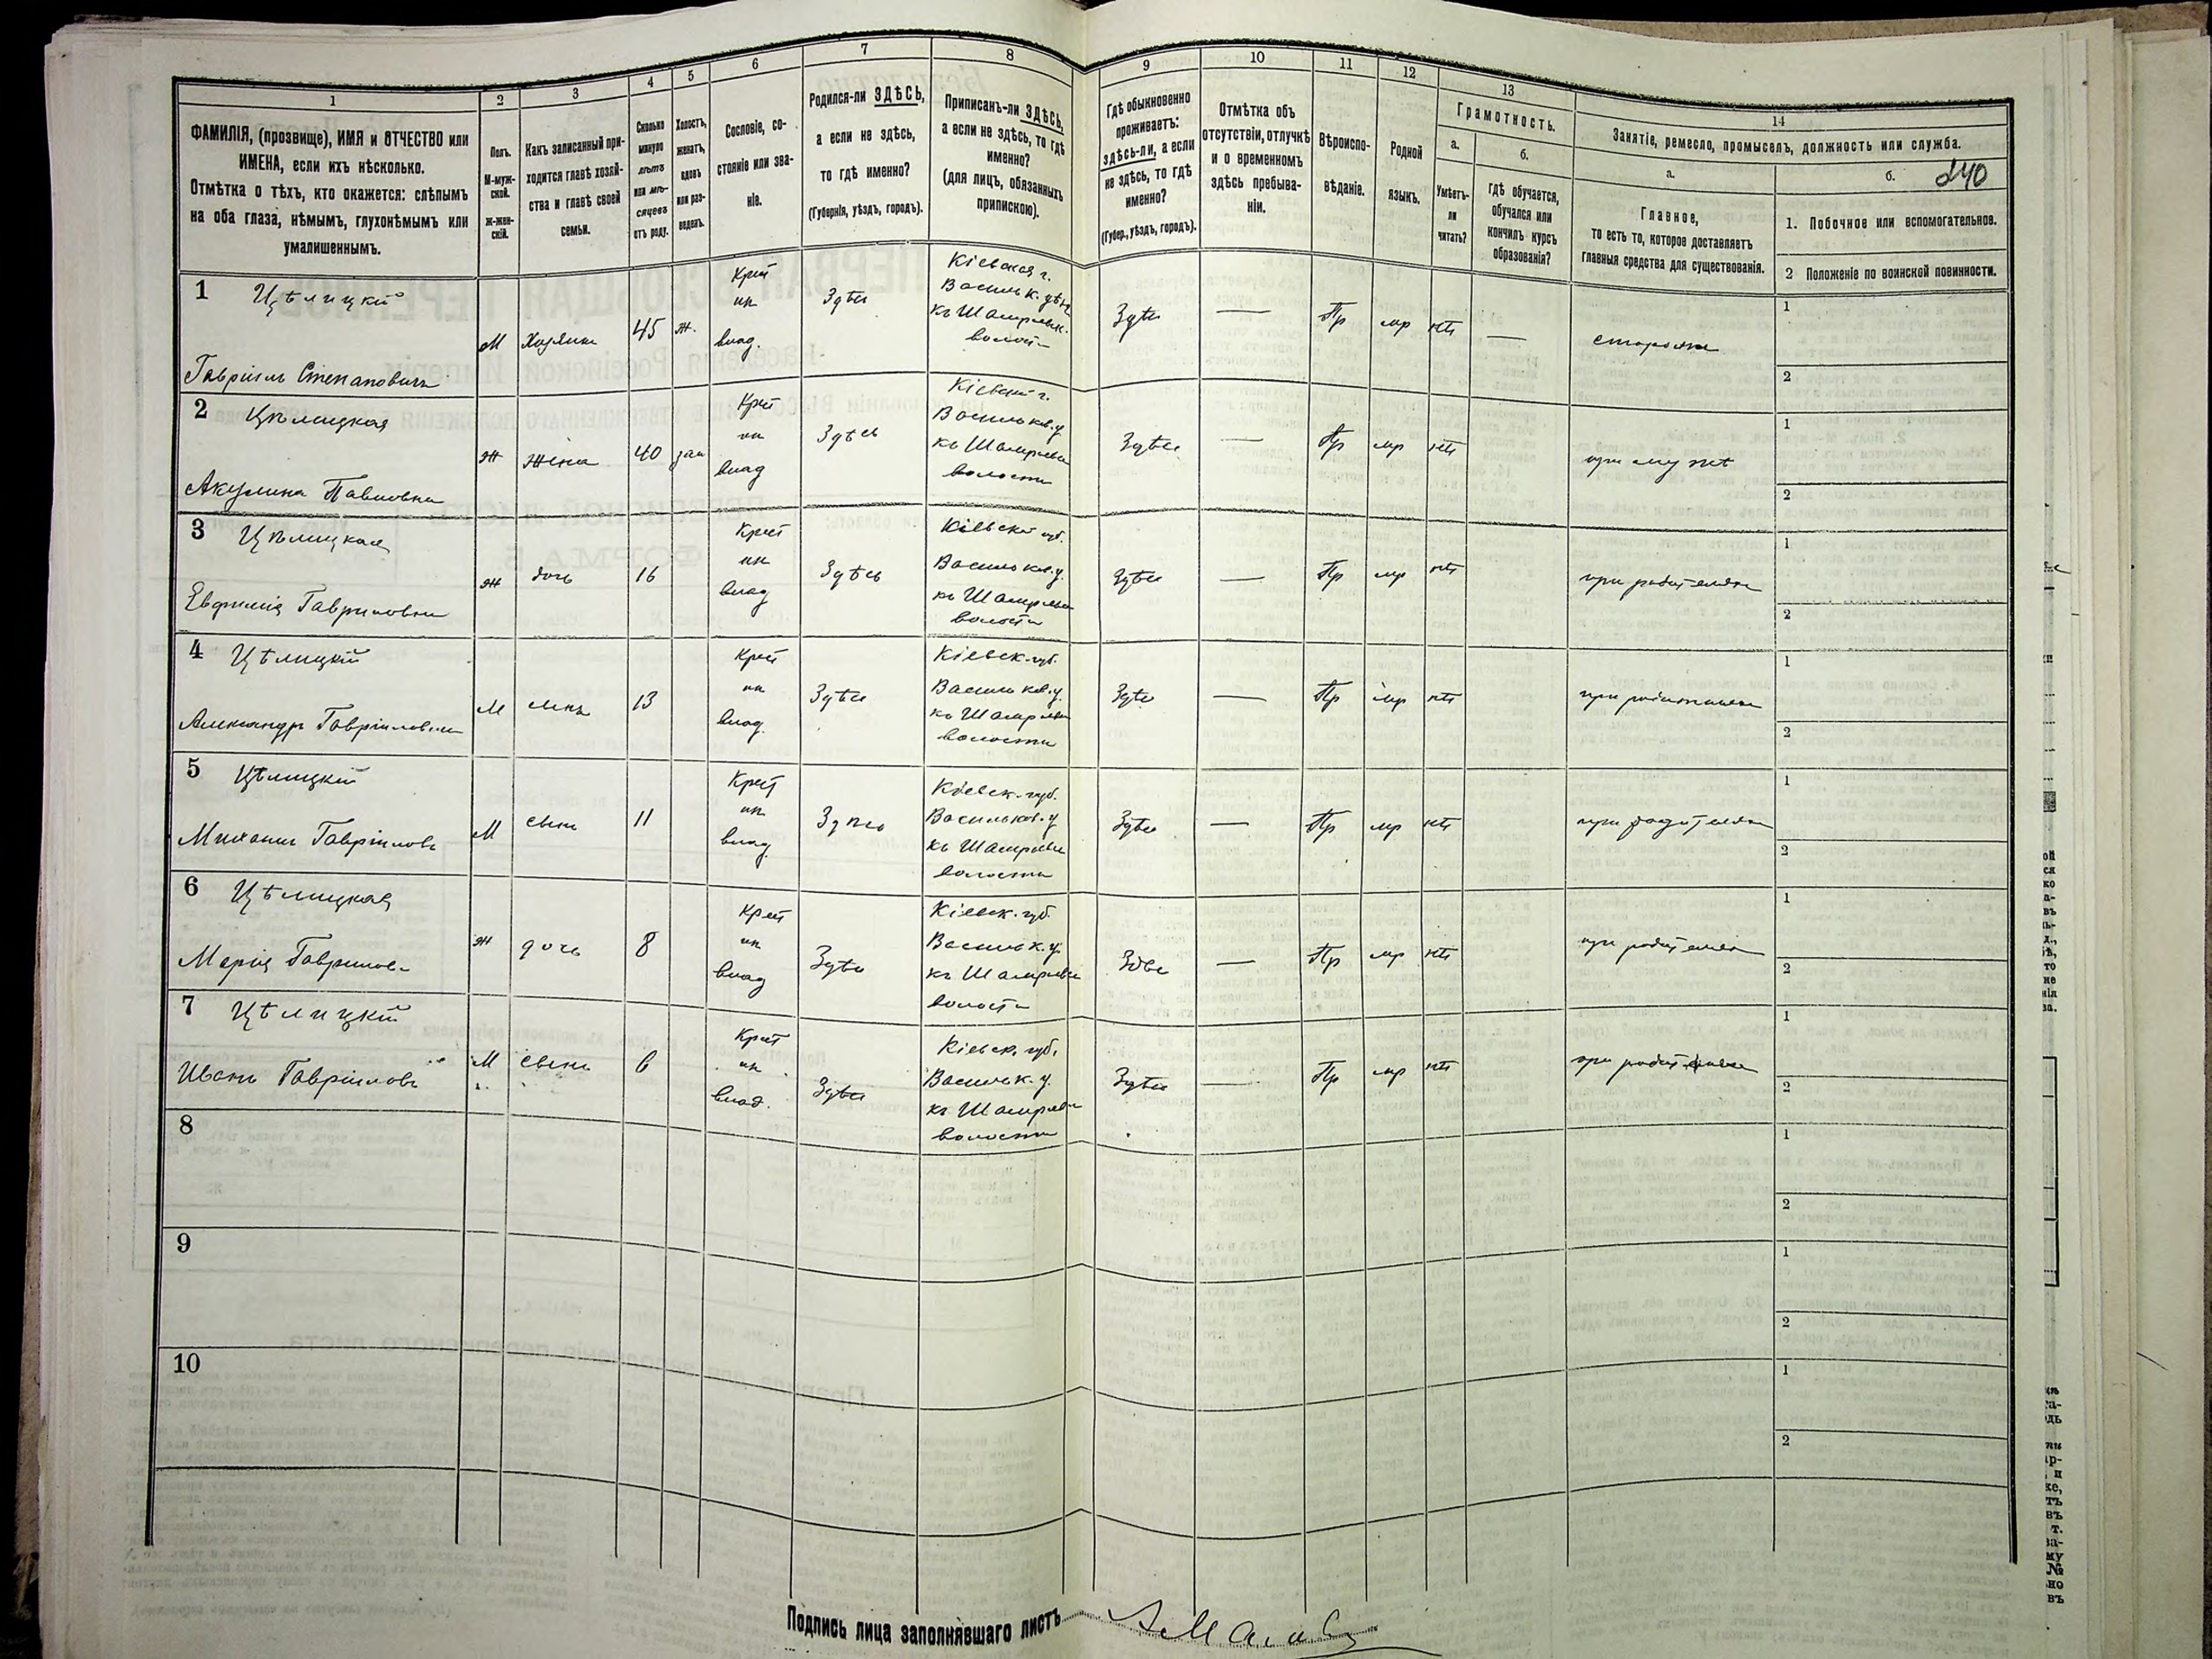 1
ФАМИЛІЯ, (прозвище), ИМЯ и ОТЧЕСТВО или
ИМЕНА, если ихъ нѣсколько.
Отмѣтка о тѣхъ, кто окажется: слѣпымъ
на оба глаза, нѣмымъ, глухонѣмымъ или
умалишеннымъ.
2
Полъ.
М-муж-
ской.
Ж-жен-
скій.
3
Какъ записанный при-
ходится главѣ хозяй-
ства и главѣ своей
семьи.
4
Сколько
минуло
лѣтъ
или мѣ-
сяцевъ
отъ роду.
5
Холостъ,
женатъ,
вдовъ
или раз-
веденъ.
6
Сословіе, со-
стояніе или зва-
ніе.
7
Родился-ли ЗДѢСЬ,
а если не здѣсь,
то гдѣ именно?
(Губернія, уѣздъ, городъ).
8
Приписанъ-ли ЗДѢСЬ,
а если не здѣсь, то гдѣ
именно?
(для лицъ, обязанныхъ
припискою).
9
Гдѣ обыкновенно
проживаетъ:
здѣсь-ли, а если
не здѣсь, то гдѣ
именно?
(Губер., уѣздъ, городъ).
10
Отмѣтка объ
отсутствіи, отлучкѣ
и о временномъ
здѣсь пребыва-
ніи.
11
Вѣроиспо-
вѣданіе.
12
Родной
языкъ.
13
Грамотность.
а.
Умѣетъ-
ли
читать?
б.
гдѣ обучается,
обучался или
кончилъ курсъ
образованія?
14
Занятіе, ремесло, промыселъ, должность или служба.
240
а.
Главное,
то есть то, которое доставляетъ
главныя средства для существованія.
б.
1. Побочное или вспомогательное.
2 Положеніе по воинской повинности.
1 Цѣлицкій
Гавріилъ Степановичъ
М Хозяинъ 45 ж.
Крест
ин
влад.
Здѣсь
Кіевская г.
Васильк.
къ
волости
Здѣсь — Пр мр нѣтъ —
сторожъ
1
2
2 Цѣлицкая
Акулина Павловна
Ж жена 40 зам
Крест
ин
влад
Здѣсь
Кіевской г.
Васильков. у.
къ
волости
Здѣсь — Пр мр нѣтъ
при мужѣ
1
2
3 Цѣлицкая
Евфимія Гавриловна
ж дочь 16
Крест
ин
влад
Здѣсь
Кіевской губ.
Васильков. у.
къ
волости
Здѣсь — Пр мр нѣтъ
при родителяхъ
1
2
4 Цѣлицкій
Александръ Гавріиловичъ
М сынъ 13
Крест
ин
влад.
Здѣсь
Кіевск. губ.
Васильков. у.
къ
волости
Здѣсь — Пр мр нѣтъ
при родителяхъ
1
2
5 Цѣлицкій
Михаилъ Гавріиловъ
М сынъ 11
Крест
ин
влад.
Здѣсь
Кіевск. губ.
Васильков. у
къ
волости
Здѣсь — Пр мр нѣтъ
при родителяхъ
1
2
6 Цѣлицкая
Марія Гаврилов.
ж дочь 8
Крест
ин
влад
Здѣсь
Кіевск. губ.
Васильк. у.
къ
волости
Здѣсь — Пр мр нѣтъ
при родителяхъ
1
2
7 Цѣлицкій
Иванъ Гавріиловъ
М сынъ 6
Крест
ин
влад.
Здѣсь
Кіевск. губ.
Васильк. у.
къ
волости
Здѣсь — Пр мр нѣтъ
при родителяхъ
1
2
8
1
2
9
1
2
10
1
2
Подпись лица заполнявшаго листъ